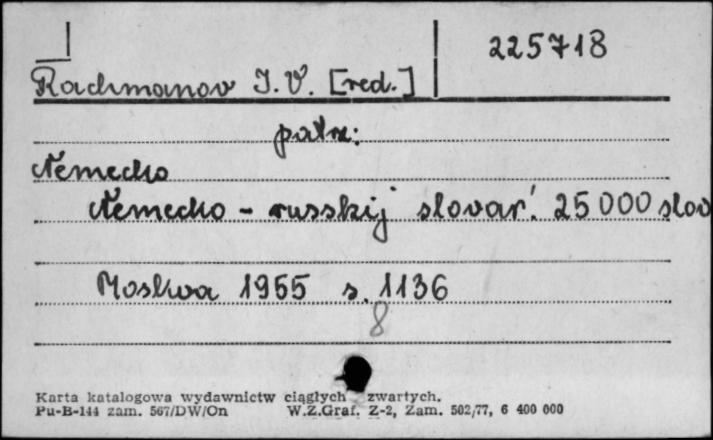 225718
Rachmanov I. V. [red.]
patrz:
Nemecko
Nemecko - russkij slovar'. 25 000 slov
Moskva 1955 s. 1136
8
Karta katalogowa wydawnictw ciągłych zwartych.
Pu-B-144 zam. 567/DW/On W.Z.Graf. Z-2, Zam. 502/77, 6 400 000